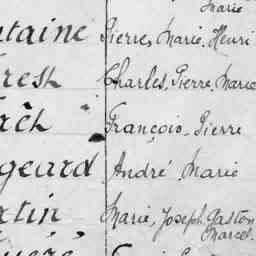 Marie
ntaine Pierre, Marie, Henri
rest Charles, Pierre, Marie
François, Pierre
geard André Marie
rtin Marie, Joseph, Gaston
Marcel.